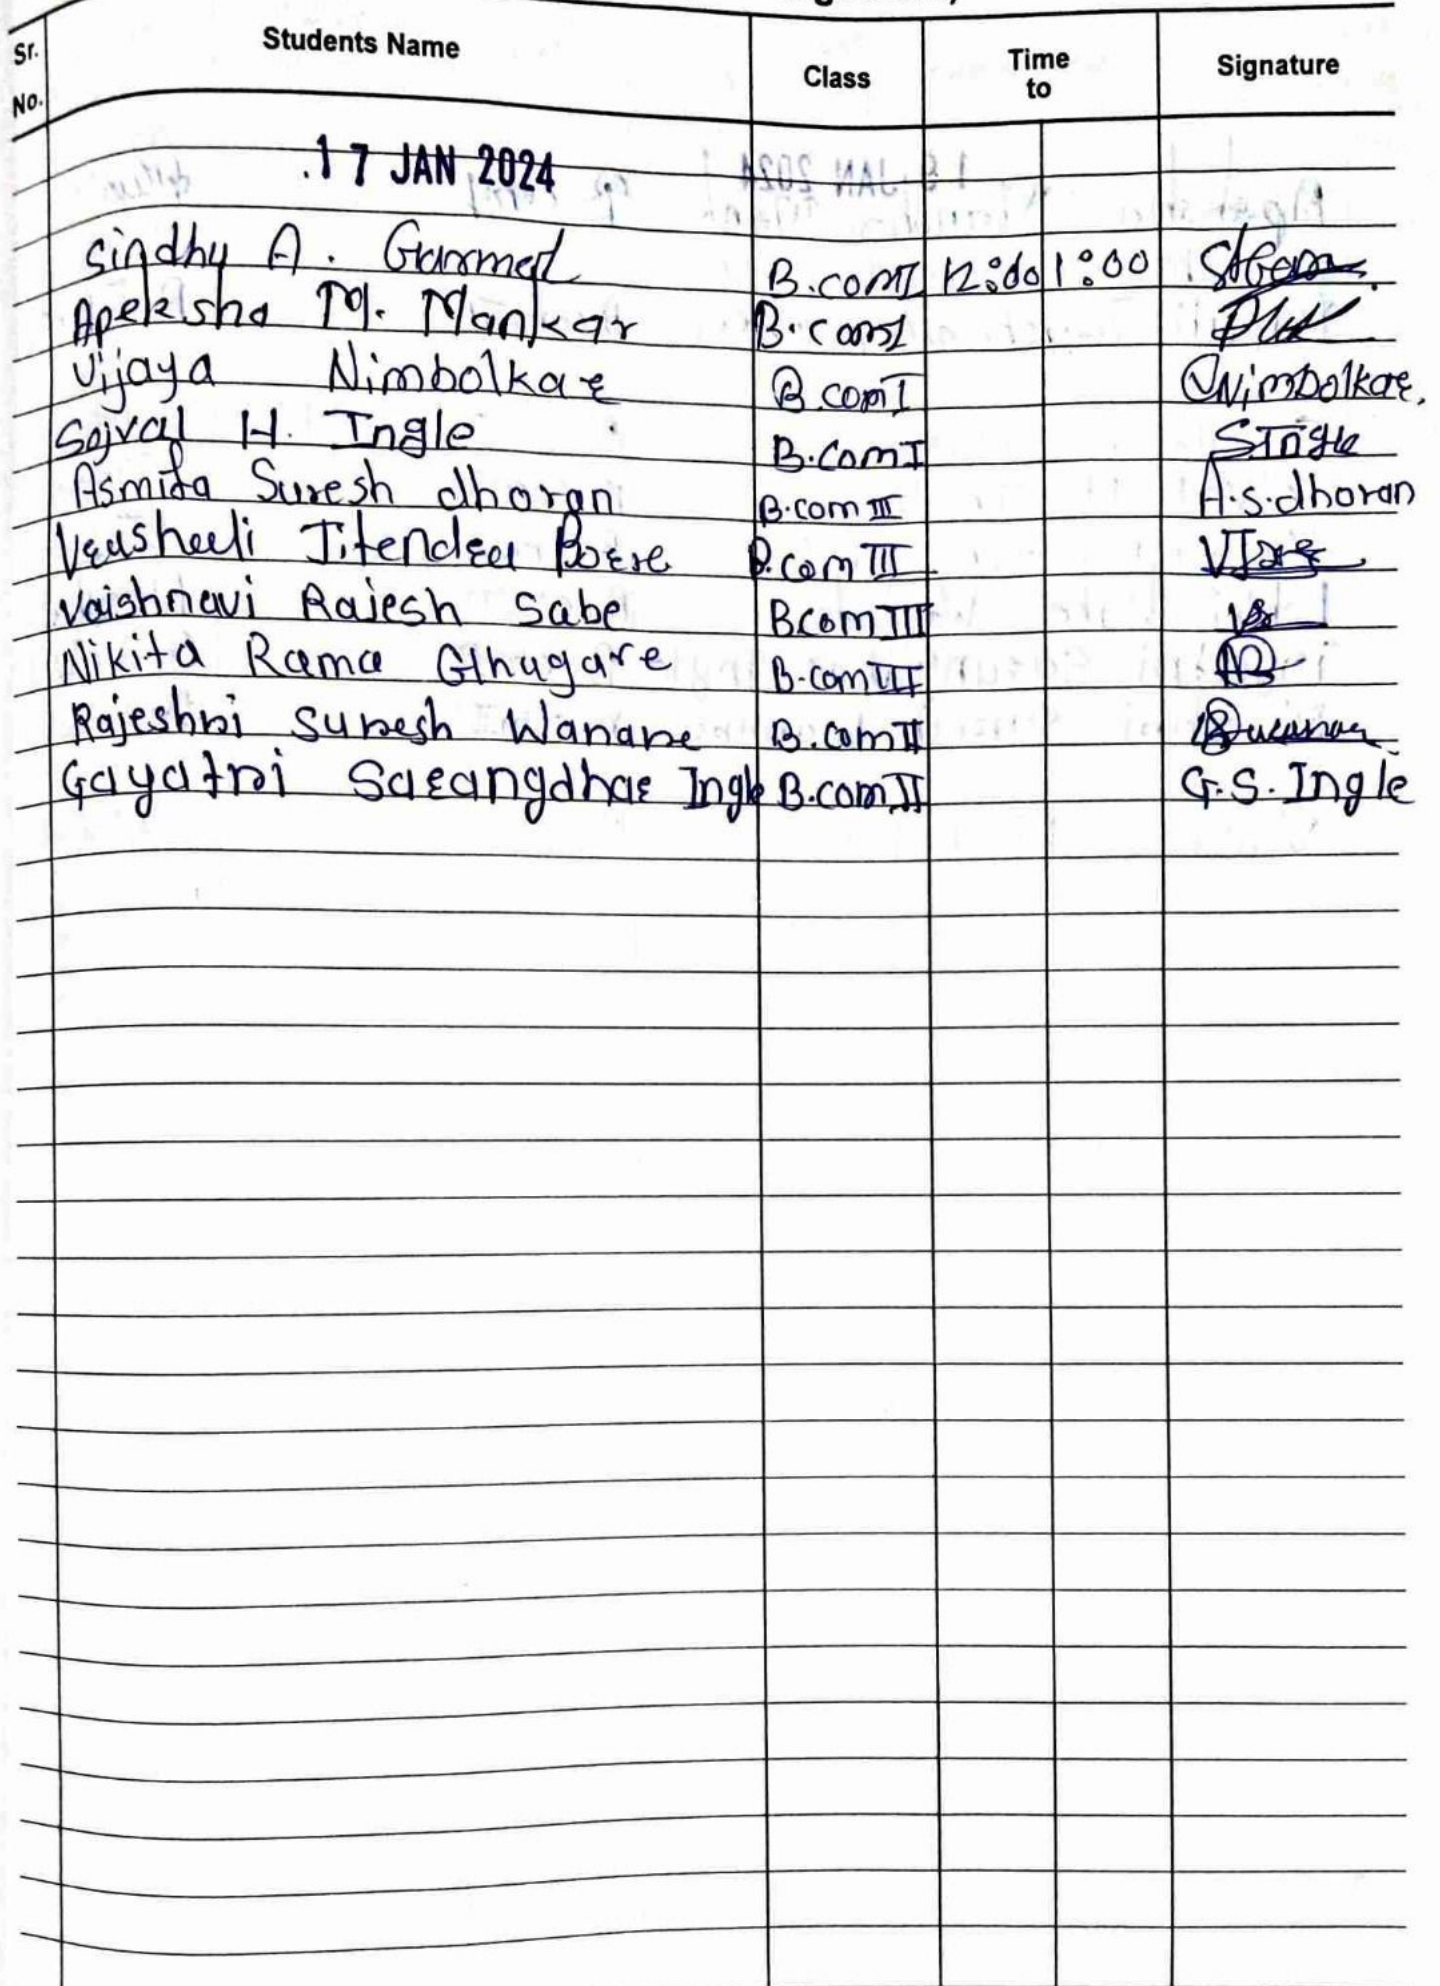 Sr. No. Students Name Class Time to Signature
17 JAN 2024
Sindhu A. B.comII 12:00 1:00
Apeksha M. Mankar B.comI
Vijaya Nimbolkar B.comI VNimbolkar.
Sejval H. Ingle B.ComI SIngle
Asmita Suresh dhoran B.com III A.s.dhoran
Jitendra B.com III
Vaishnavi Rajesh Sabe Bcom III
Nikita Rama Ghugare B.comIII
Rajeshri Suresh Wanare B.comII
Gayatri Sarangdhar Ingle B.comII G.S. Ingle